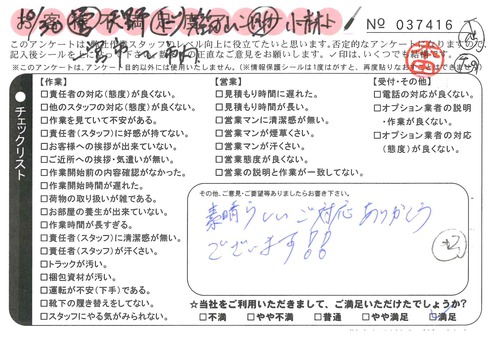 No 037416
小林
このアンケートは
スタッフのレベル向上に役立てたいと思います。否定的なアンケートになりますので、
記入後シールを
率直なご意見をお願いします。✓印は、いくつでも結構です。
(※このアンケートは、アンケート目的以外には使用いたしません。(※情報保護シールは1度はがすと、再度貼りなおすことはできません)
チェックリスト
【作業】
□責任者の対応(態度)が良くない。
□他のスタッフの対応(態度)が良くない。
□作業を見ていて不安がある。
□責任者(スタッフ)に好感が持てない。
□お客様への挨拶が出来ていない。
□ご近所への挨拶・気遣いが無い。
□作業開始前の内容確認がなかった。
□作業開始時間が遅れた。
□荷物の取り扱いが雑である。
□お部屋の養生が出来ていない。
□作業時間が長すぎる。
□責任者(スタッフ)に清潔感が無い。
□責任者(スタッフ)が汗くさい。
□トラックが汚い。
□梱包資材が汚い。
□運転が不安(下手)である。
□靴下の履き替えをしてない。
□スタッフにやる気がみられない。
【営業】
□見積もり時間に遅れた。
□見積もり時間が長い。
□営業マンに清潔感が無い。
□営業マンが煙草くさい。
□営業マンが汗くさい。
□営業態度が良くない。
□営業の説明と作業が一致してない。
【受付・その他】
□電話の対応が良くない。
□オプション業者の説明
・作業が良くない。
□オプション業者の対応
(態度)が良くない。
その他、ご意見・ご要望等ありましたらお書き下さい。
素晴らしいご対応ありがとう
ございます!!
☆当社をご利用いただきまして、ご満足いただけたでしょうか?
□不満 □やや不満 □普通 □やや満足 ☑満足